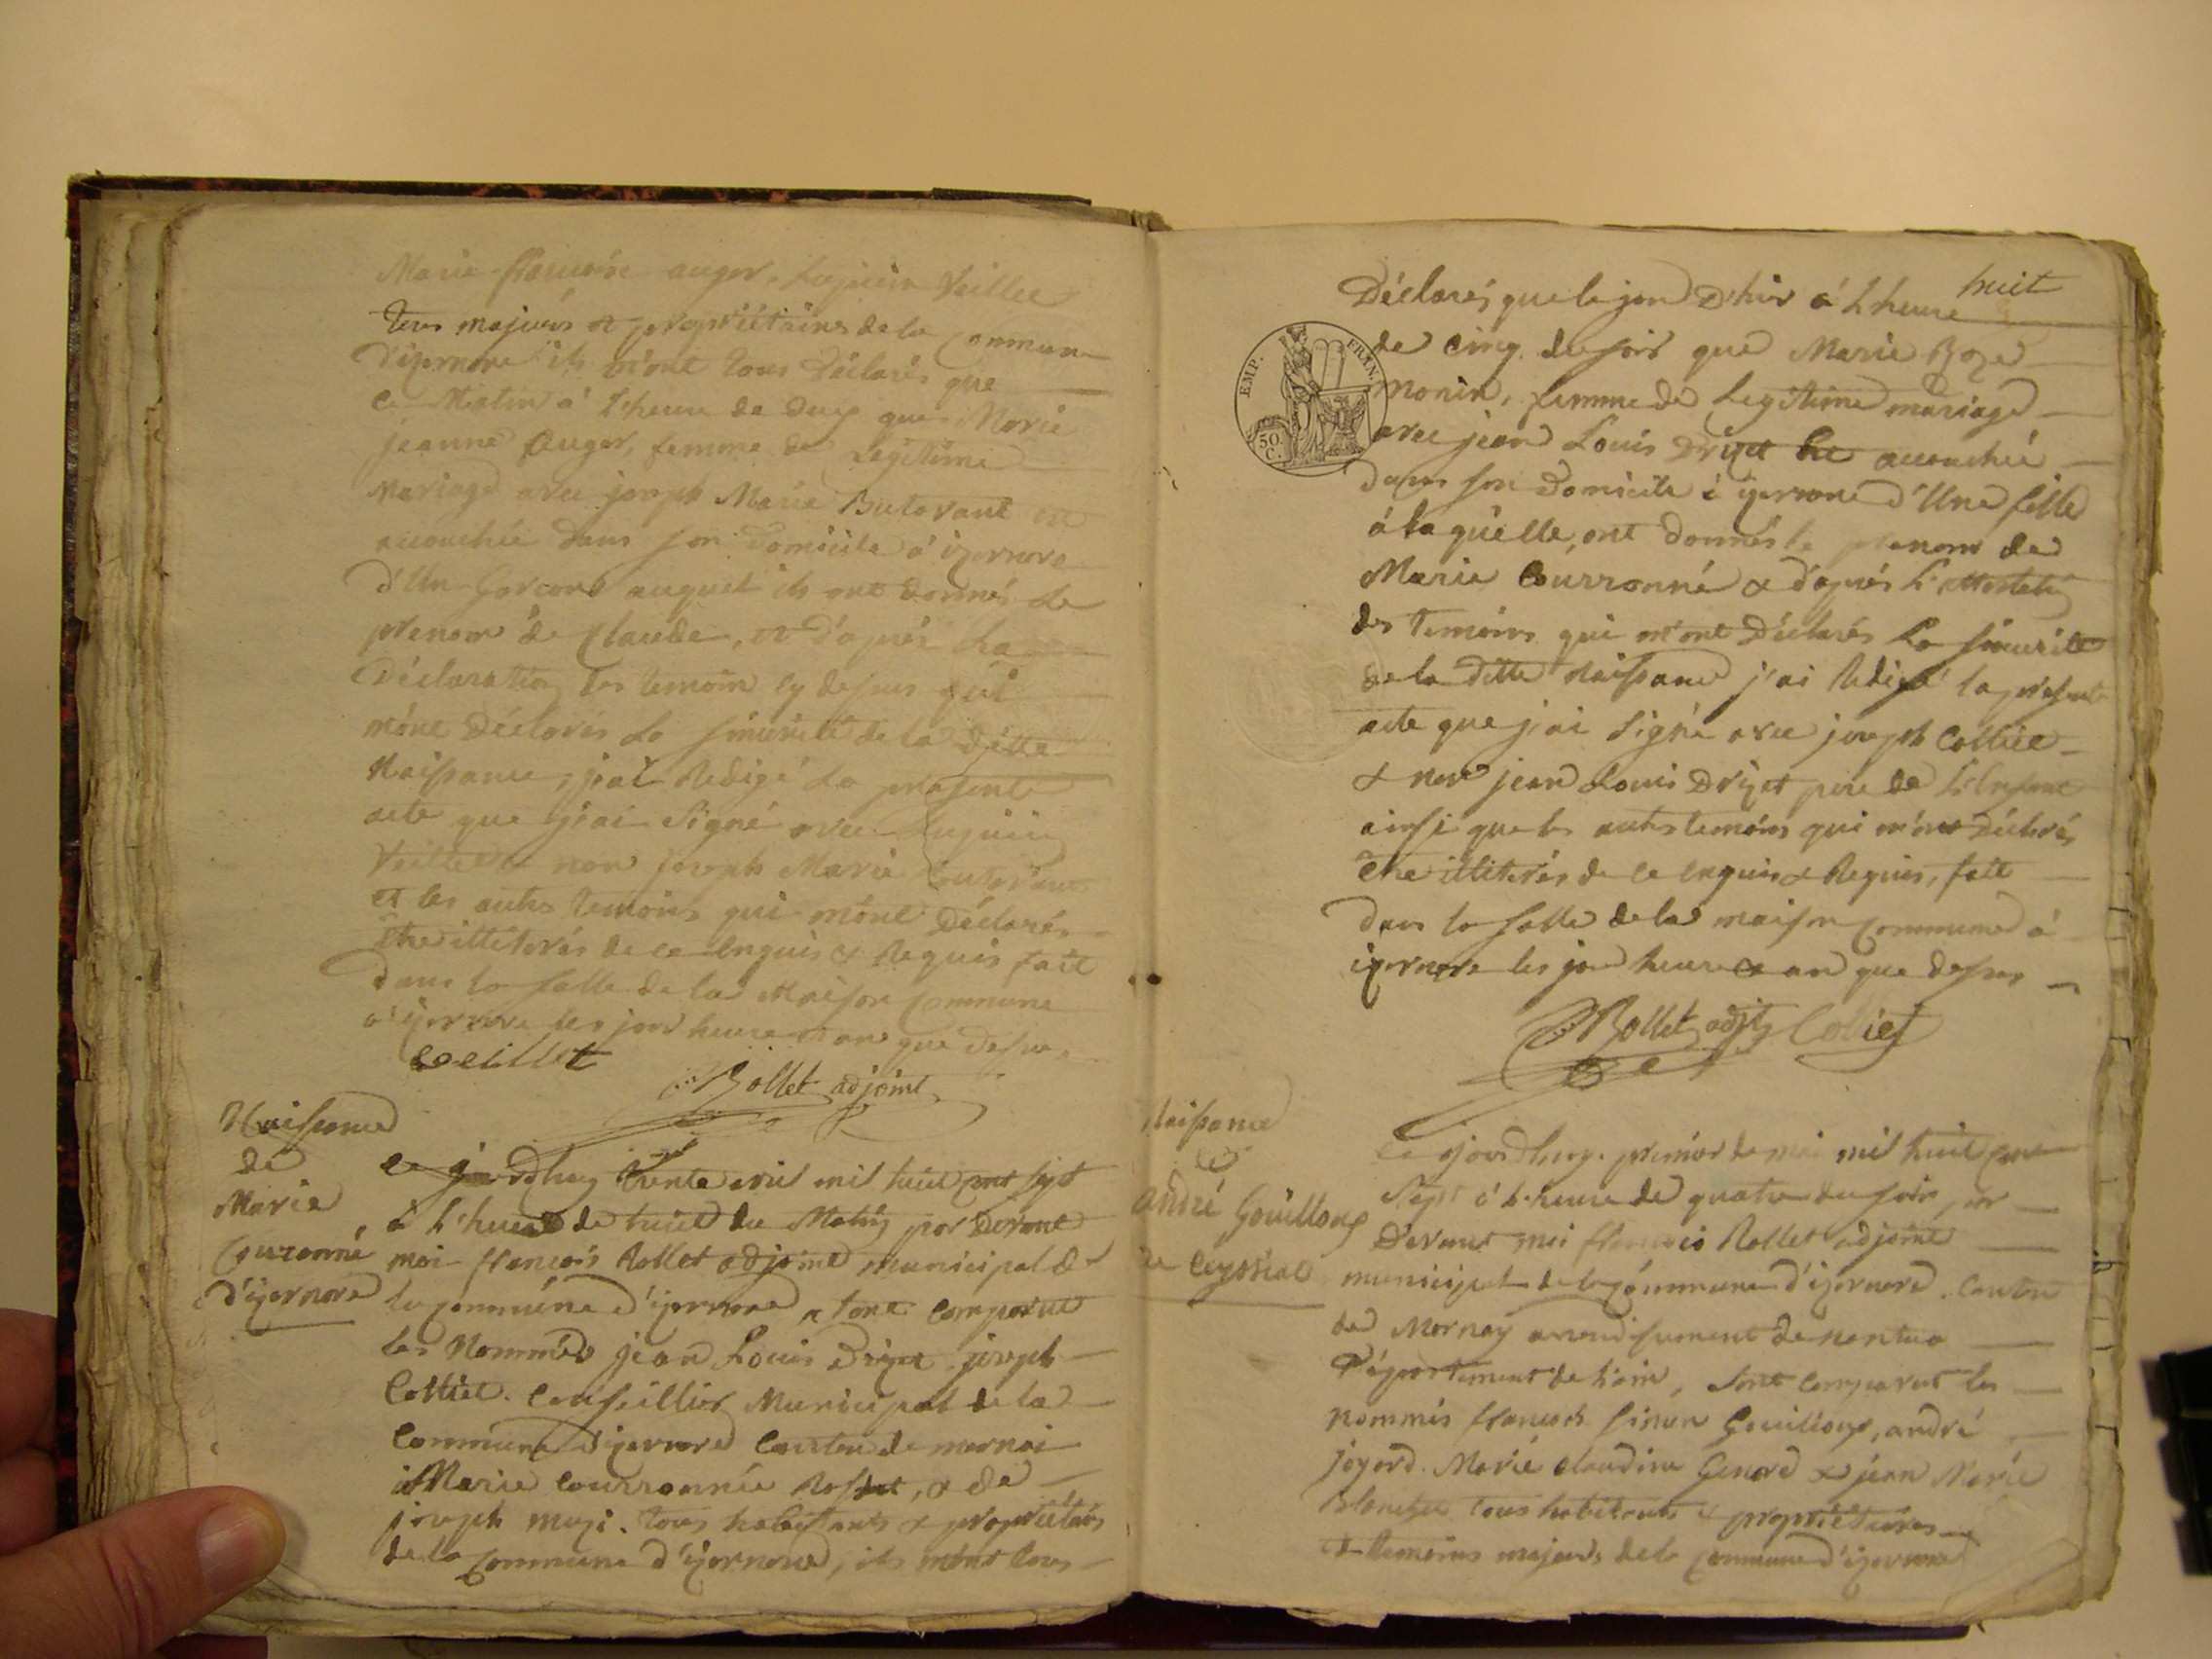 Marie françoise auger, Eugenie Veillet
tous majeurs et propriétaires de la commune
d'izernore ils m'ont tous déclarés que
ce Matin à l'heure de deux que Marie
jeanne Auger, femme de Legitime
Mariage avec joseph Marie Butavant est
accouchée dans son domicile à izernore
d'Un Garcon auquel ils ont donnés le
prenom de Claude, et d'après la
Déclaration des temoin cy dessus qui
m'ont Déclarés la sincerité de la ditte
Naissance, j'ai Redigé la presente
acte que j'ai signé avec
Veillet non joseph Marie Butavant
et les autres temoins qui m'ont Déclarés
être illiterés de ce enquis & Requis fait
dans la salle de la Maison Commune
à izernore les jour heure et an que dessus
Veillet
Rollet adjoint
Naissance
de
Marie
Couronné
d'izernore
Ce jourdhuy trente avril mil huit cent sept
à l'heure de huit du Matin par devant
moi françois Rollet adjoint municipal de
la commune d'izernore, sont comparut
les Nommés jean Louis Drizet joseph
Colliet. Conseillier Municipal de la
Commune d'izernore Canton de mornai
Marie Courronnée Rosset, & de
joseph mugi. tous habitants & propriétaires
de la commune d'izernore, ils m'ont tous
huit
Déclarés que le jour D'hier à l'heure
de cinq du soir que Marie Roze
Monin, femme de Legitime mariage
avec jean Louis Drizet est accouchée
Dans son Domicile à izernore d'Une fille
à laquelle, ont donnés le prenom de
Marie Courronné & d'après l'attestation
des temoins qui m'ont Déclarés la sincerité
de la ditte Naissance j'ai Redigé la presente
acte que j'ai signé avec joseph Colliet
& non jean Louis Drizet pere de L'Enfant
ainsi que les autres temoins qui m'ont Déclarés
être illiterés de ce enquis & Requis, fait
dans la salle de la maison Commune à
izernore les jour heure & an que dessus
Rollet adjt Colliet
EMP. FRAN.
50. C.
Naissance
de
André Goüilloux
de Ceyssiat
Ce jourdhuy. premier de mai mil huit cent
Sept à l'heure de quatre du soir, par
Devant moi françois Rollet adjoint
municipal de la commune d'izernore. Canton
de Mornay arrondissement de nantua
Département de l'ain, Sont Comparut les
nommés françois Goüilloux, andré
joyard. Marie claudine Genod & jean Marie
tous habitants & propriétaires
& temoins majeurs de la commune d'izernore